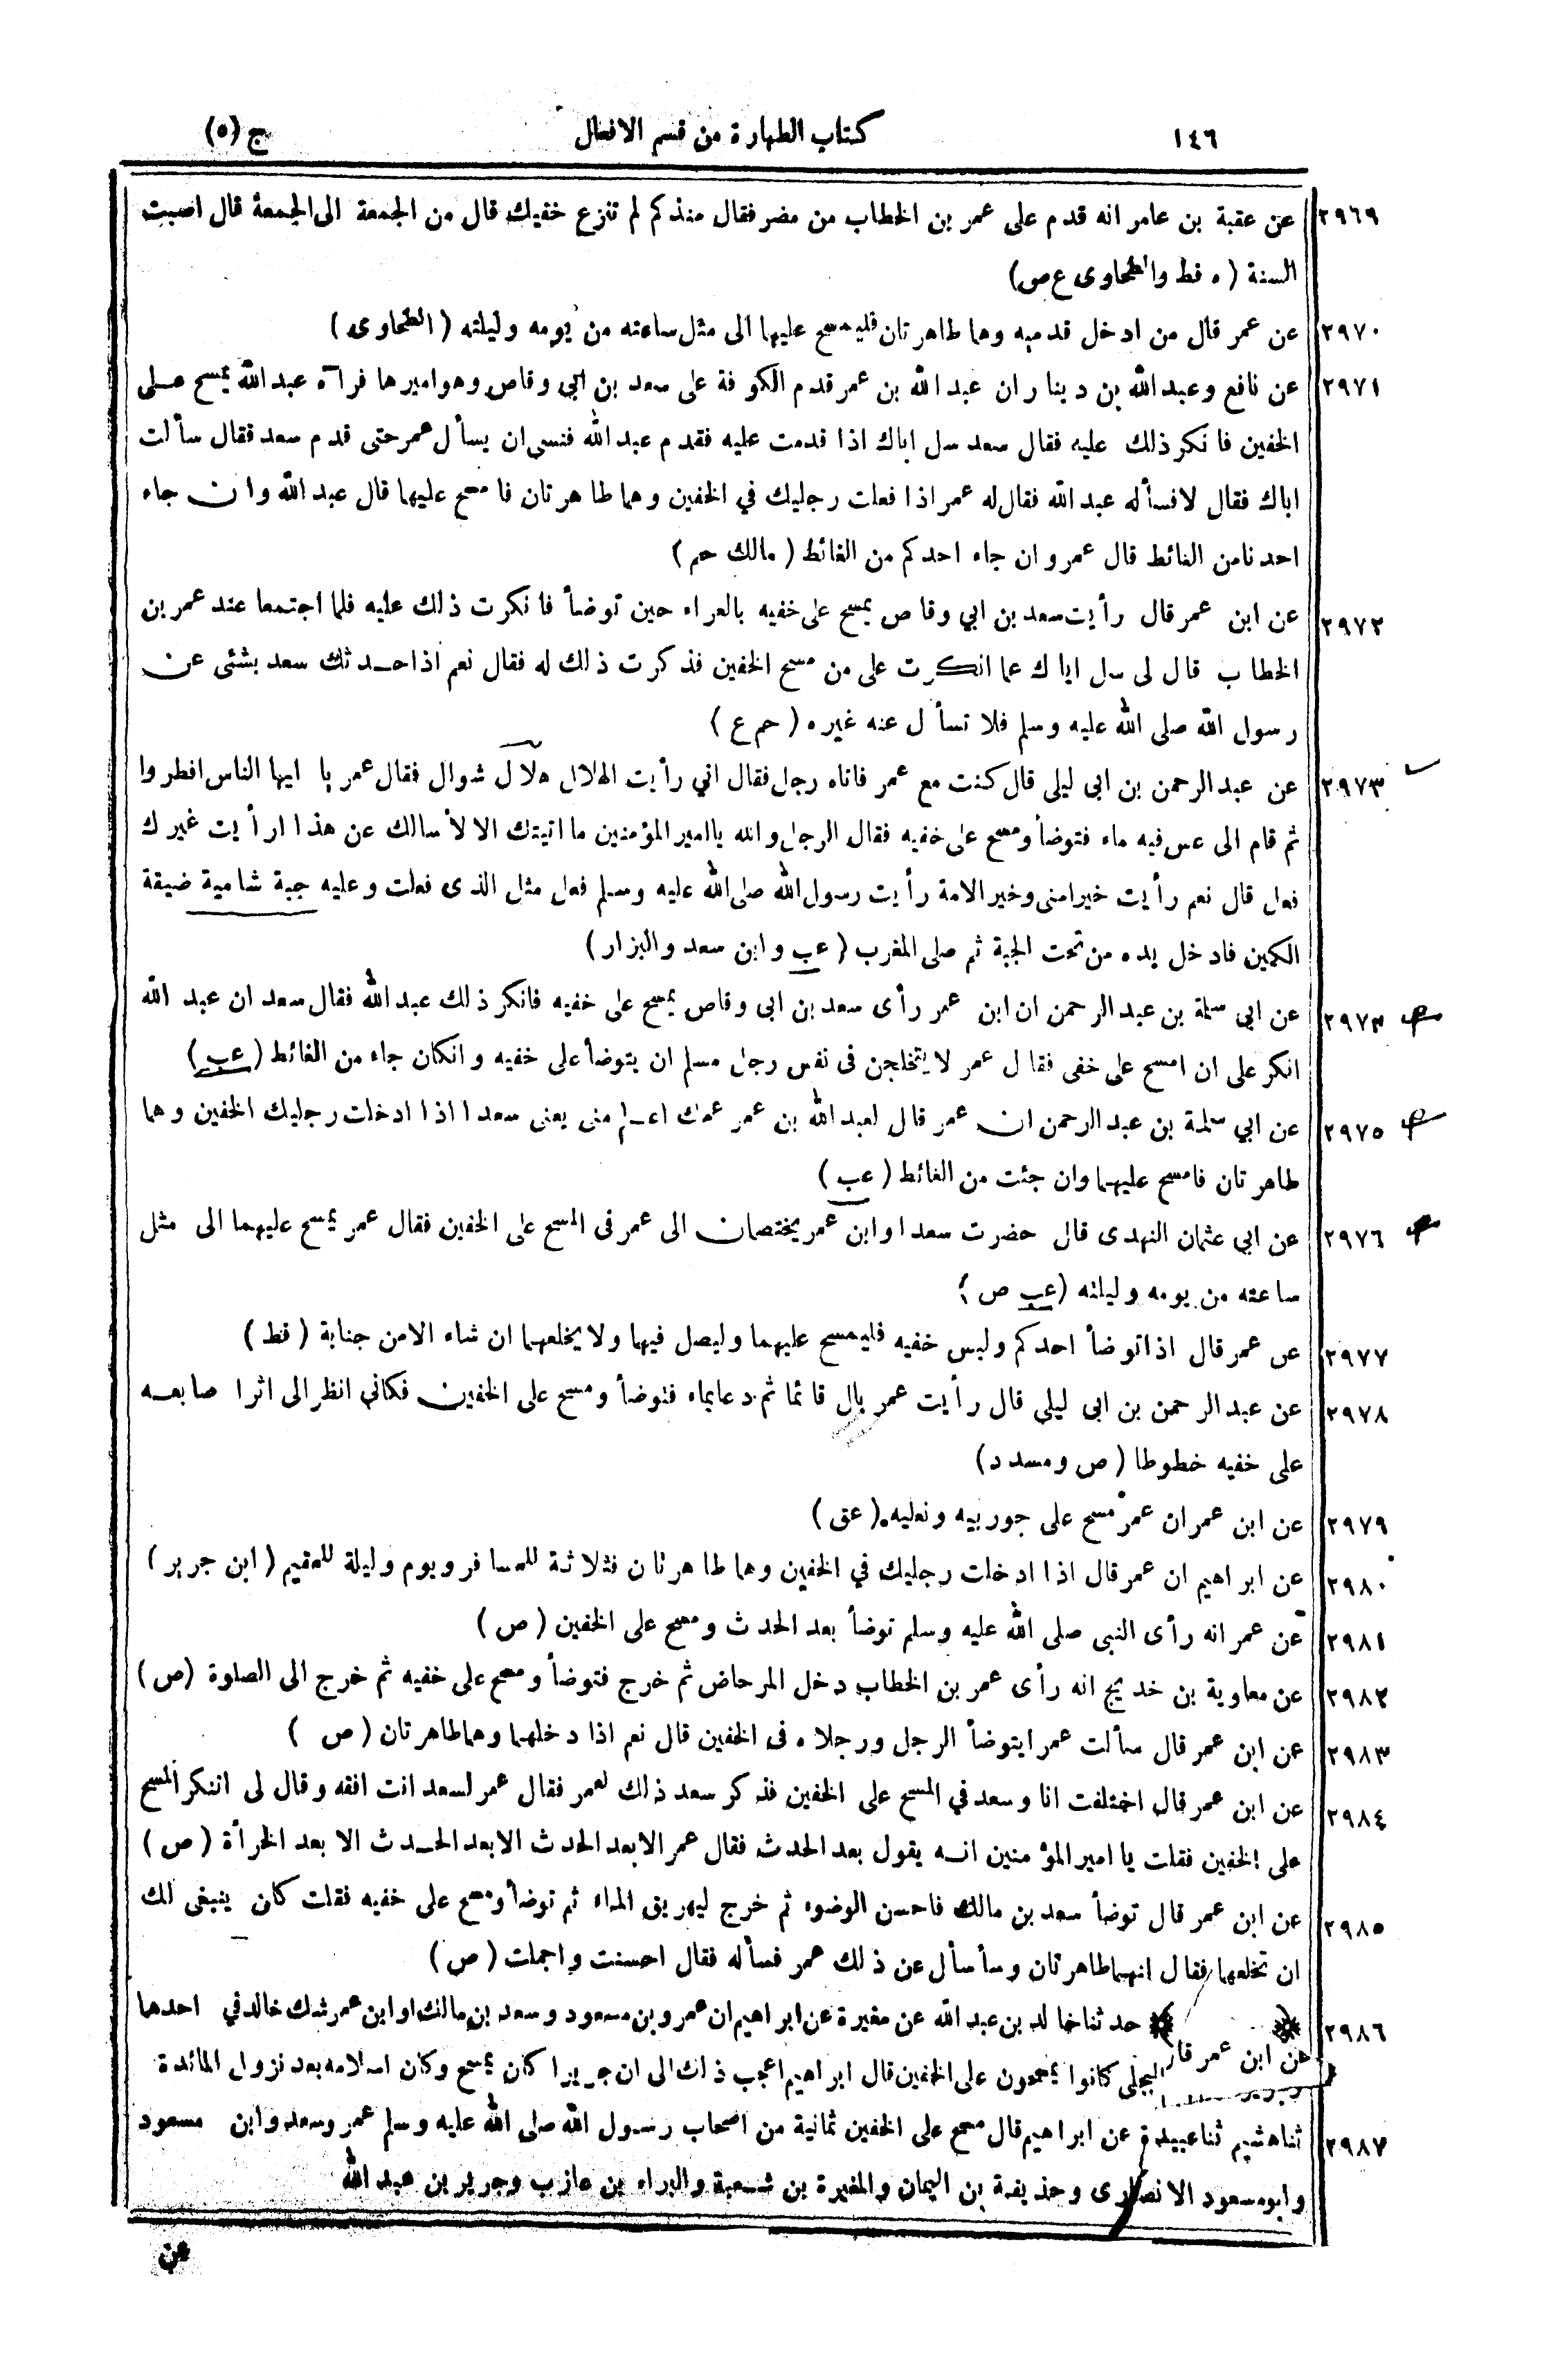 ١٤٦ كتاب الطهارة من قسم الافعال ج (٥)
٢٩٦٩ عن عقبة بن عامر انه قدم على عمر بن الخطاب من مضر فقال منذكم لم تنزع خفيك قال من الجمعة الى الجمعة قال اصبت
السنة (ه قط والطحاوى ع ص)
٢٩٧٠ عن عمر قال من ادخل قدميه وهما طاهرتان فليمسح عليها الى مثل ساعته من يومه وليلته (الطحاوى)
٢٩٧١ عن نافع وعبد الله بن دينار ان عبد الله بن عمر قدم الكوفة على سعد بن ابي وقاص وهو اميرها فرآه عبد الله يمسح على
الخفين فانكر ذلك عليه فقال سعد سل اباك اذا قدمت عليه فقدم عبد الله فنسى ان يسأل عمر حتى قدم سعد فقال سألت
اباك فقال لا فسأله عبد الله فقال له عمر اذا فعلت رجليك في الخفين وهما طاهرتان فامسح عليها قال عبد الله وان جاء
احدنا من الغائط قال عمر وان جاء احدكم من الغائط (مالك حم)
٢٩٧٢ عن ابن عمر قال رأيت سعد بن ابي وقاص يمسح على خفيه بالعراء حين توضأ فانكرت ذلك عليه فلما اجتمعا عند عمر بن
الخطاب قال لى سل اباك عما انكرت على من مسح الخفين فذكرت ذلك له فقال نعم اذا حدثك سعد بشئى عن
رسول الله صلى الله عليه وسلم فلا تسأل عنه غيره (حم ع)
٢٩٧٣ عن عبد الرحمن بن ابى ليلى قال كنت مع عمر فاتاه رجل فقال اني رأيت الهلال هلال شوال فقال عمر يا ايها الناس افطروا
ثم قام الى عس فيه ماء فتوضأ ومسح على خفيه فقال الرجل والله يا امير المؤمنين ما اتيتك الا لأسالك عن هذا ارأيت غيرك
فعل قال نعم رأيت خيرا منى وخير الامة رأيت رسول الله صلى الله عليه وسلم فعل مثل الذى فعلت وعليه جبة شامية ضيقة
الكمين فادخل يده من تحت الجبة ثم صلى المغرب (عب وابن سعد والبزار)
٢٩٧٤ عن ابي سلمة بن عبد الرحمن ان ابن عمر رأى سعد بن ابى وقاص يمسح على خفيه فانكر ذلك عبد الله فقال سعد ان عبد الله
انكر على ان امسح على خفى فقال عمر لا يتخلجن فى نفس رجل مسلم ان يتوضأ على خفيه وانكان جاء من الغائط (عب)
٢٩٧٥ عن ابي سلمة بن عبد الرحمن ان عمر قال لعبد الله بن عمر عمك اعلم منى يعنى سعدا اذا ادخلت رجليك الخفين وهما
طاهرتان فامسح عليهما وان جئت من الغائط (عب)
٢٩٧٦ عن ابى عثمان النهدى قال حضرت سعدا وابن عمر يختصمان الى عمر فى المسح على الخفين فقال عمر يمسح عليهما الى مثل
ساعته من يومه وليلته (عب ص)
٢٩٧٧ عن عمر قال اذا توضأ احدكم ولبس خفيه فليمسح عليهما وليصل فيها ولا يخلعهما ان شاء الا من جنابة (قط)
٢٩٧٨ عن عبد الرحمن بن ابى ليلى قال رأيت عمر بال قائما ثم دعا بماء فتوضأ ومسح على الخفين فكانى انظر الى اثر اصابعه
على خفيه خطوطا (ص ومسدد)
٢٩٧٩ عن ابن عمر ان عمر مسح على جوربيه ونعليه (عق)
٢٩٨٠ عن ابراهيم ان عمر قال اذا ادخلت رجليك في الخفين وهما طاهرتان فثلاثة للمسافر ويوم وليلة للمقيم (ابن جرير)
٢٩٨١ عن عمر انه رأى النبى صلى الله عليه وسلم توضأ بعد الحدث ومسح على الخفين (ص)
٢٩٨٢ عن معاوية بن خديج انه رأى عمر بن الخطاب دخل المرحاض ثم خرج فتوضأ ومسح على خفيه ثم خرج الى الصلوة (ص)
٢٩٨٣ عن ابن عمر قال سألت عمر ايتوضأ الرجل ورجلاه فى الخفين قال نعم اذا دخلهما وهما طاهرتان (ص)
٢٩٨٤ عن ابن عمر قال اختلفت انا وسعد في المسح على الخفين فذكر سعد ذلك لعمر فقال عمر لسعد انت افقه وقال لى اتنكر المسح
على الخفين فقلت يا امير المؤمنين انه يقول بعد الحدث فقال عمر الا بعد الحدث الا بعد الحدث الا بعد الخرأة (ص)
٢٩٨٥ عن ابن عمر قال توضأ سعد بن مالك فاحسن الوضوء ثم خرج ليهريق الماء ثم توضأ ومسح على خفيه فقلت كان ينبغى لك
ان تخلعها فقال انهما طاهرتان وسأسأل عن ذلك عمر فسأله فقال احسنت واجملت (ص)
٢٩٨٦ حدثنا خالد بن عبد الله عن مغيرة عن ابراهيم ان عمر وبن مسعود وسعد بن مالك او ابن عمر شك خالد في احدهما
عن ابن عمر قال البجلى كانوا يمسحون على الخفين قال ابراهيم اعجب ذاك الى ان جريرا كان يمسح وكان اسلامه بعد نزول المائدة
٢٩٨٧ ثنا هشيم ثنا عبيدة عن ابراهيم قال مسح على الخفين ثمانية من اصحاب رسول الله صلى الله عليه وسلم عمر وسعد وابن مسعود
وابو مسعود الانصارى وحذيفة بن اليمان والمغيرة بن شعبة والبراء بن عازب وجرير بن عبد الله
عن